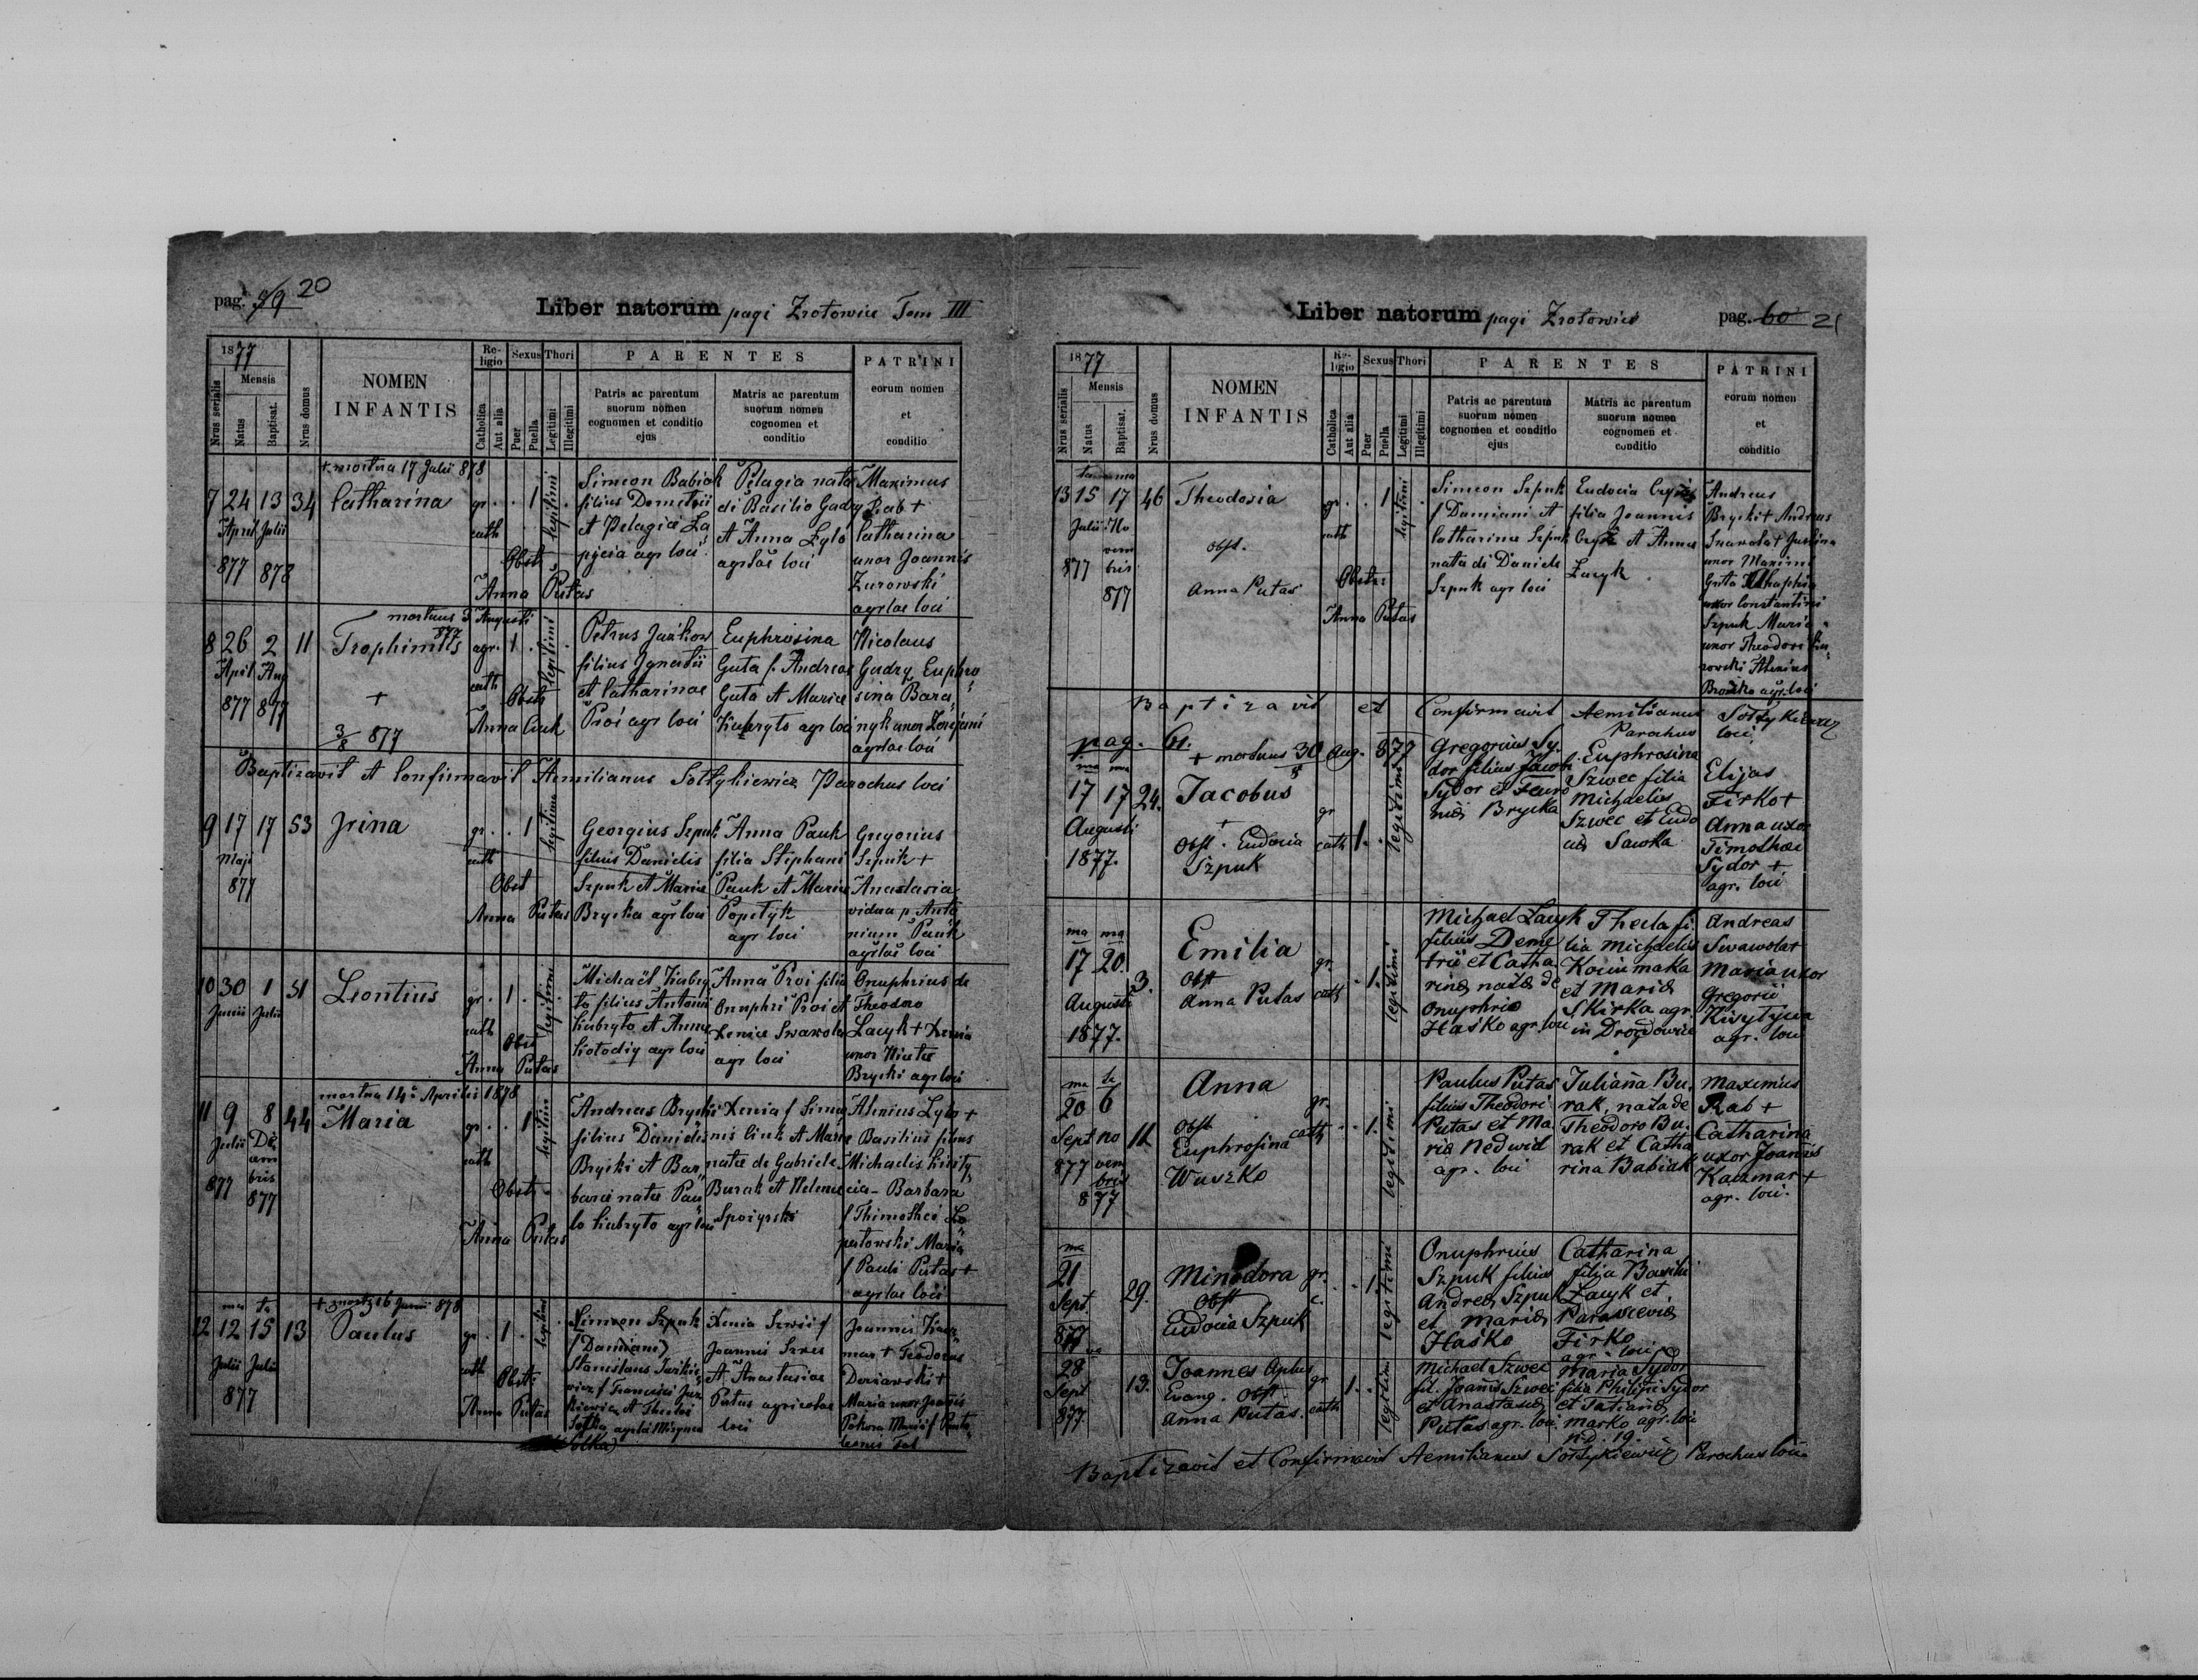 pag. 59 20
Liber natorum pagi Zrotowice Tom III
1877
Nrus serialis
Mensis
Natus
Baptisat.
Nrus domus
NOMEN
INFANTIS
Religio
Catholica
Aut alia
Sexus
Puer
Puella
Thori
Legitimi
Illegitimi
PARENTES
Patris ac parentum
suorum nomen
cognomen et conditio
ejus
Matris ac parentum
suorum nomen
cognomen et
conditio
PATRINI
eorum nomen
et
conditio
+ mortua 17 Julii 878
7 24 13 34 Catharina gr. . . 1 legitimi
April Julii cath
877 878 Obst
Anna Putas
Simeon Babiak
filius Demetrii
et Pelagiae La
pycia agr loci
Pelagia nata
di Basilio Gudz
et Anna Zylo
agrlae loci
Maximus
Rab +
Catharina
uxor Joannis
Zurowski
agrlae loci
mortuus 3 Augusti
877
8 26 2 11 Trophimus agr. 1 . legitimi
April Aug cath
877 877 + Obst
3/8 877 Anna Ciuk
Petrus
filius Ignatii
et Catharinae
Proi agr loci
Euphrosina
Guta f. Andreae
Guta et Mariae
Kubryto agr loci
Nicolaus
Gudz Euphro
sina Bara
nyk uxor
agrlae loci
Baptizavit et Confirmavit Aemilianus Sottykiewicz Parochus loci
9 17 17 53 Irina gr. . . 1 legitimi
Maji cath
877 Obst
Anna Putas
Georgius Szpuk
filius Danielis
Szpuk et Mariae
Brycka agr loci
Anna Pauk
filia Stephani
Pauk et Mariae
Popetyk
agr loci
Gregorius
Szpuk +
Anastasia
vidua p. Anto
nium Pauk
agrlae loci
10 30 1 51 Leontius gr. 1 . legitimi
Junii Julii cath
Obst
Anna Putas
Michaël Kubry
to filius Antonii
Kubryto et Annae
Kotodiy agr loci
Anna Proi filia
Onuphri Proi et
Xeniae Swawola
agr loci
Onuphrius de
Theodoro
Lacyk + Xenia
uxor
Brycki agr loci
mortua 14a Aprilis 1878
11 9 8 44 Maria gr. . . 1 legitimi
Julii De
cem
bris cath
877 877 Obst.
Anna Putas
Andreas Brycki
filius Danielis
Brycki et Bar
barae natae Pau
lo Kubryto agr loci
Xenia f Simeo
nis Ciuk et Mariae
natae de Gabriele
Burak et Helenae
Alexius Zylo +
Basilius filius
Michaelis
Barbara
f Thimothei Lo
patowski Maria
f Pauli Putas +
agrlae loci
+ mort 16 Junii 878
12 12 15 13 Paulus gr. 1 . legitimi
Julii Julii cath Obst:
877 Anna Putas
Simeon Szpuk
(Damiani)
Stanislaus
Xenia
Joannis
et Anastasiae
Putas agricolae
loci
Joannis
mar + Teodorus
Maria uxor Joannis
Liber natorum pagi Zrotowice
pag. 60 21
1877
Nrus serialis
Mensis
Natus
Baptisat.
Nrus domus
NOMEN
INFANTIS
Religio
Catholica
Aut alia
Sexus
Puer
Puella
Thori
Legitimi
Illegitimi
PARENTES
Patris ac parentum
suorum nomen
cognomen et conditio
ejus
Matris ac parentum
suorum nomen
cognomen et
conditio
PATRINI
eorum nomen
et
conditio
13 15 17 46 Theodosia gr. . . 1 legitimi
Julii No
vem
bris cath
877 877 Obst.
Anna Putas
Obst:
Anna Putas
Simeon Szpuk
f Damiani et
Catharinae Szpuk
nata di Daniele
Szpuk agr loci
Eudocia
filia Joannis
et Annae
Lacyk
Andreas
Brycki + Andreas
Swawola + Justina
uxor Maximi
Guta
uxor Constantini
Szpuk Maria
uxor Theodori
agrloci
Baptizavit et Confirmavit Aemilianus Sottykiewicz
Parochus loci
pag. 61. + mortuus 30 Aug. 877
ma ma
17 17 24. Jacobus gr cath 1. . legitimi
Augusti + Obst. Eudocia
1877. Szpuk
Gregorius Sy.
dor filius Jacobi
Sydor et
Brycka
Euphrosina
Szwec filia
Michaelis
Szwec et Eudo
ciae Sawka
Elijas
Firko +
Anna uxor
Timothaei
Sydor +
agr. loci
ma ma
17 20. 3. Emilia gr. cath . 1. legitimi
Augusti Obst
1877. Anna Putas
Michael Lacyk
filius Deme
trii et Catha
rinae natae de
Onuphrio
Hasko agr. loci
Thecla fi.
lia Michaelis
et Mariae
Skirka agr.
in Drozdowice
Andreas
Swawola +
Maria uxor
Gregorii
agr. loci
ma ta
20 6 11 Anna gr. cath . 1. legitimi
Sept no
877 vem
bris
877 Obst
Euphrosina
Waszko
Paulus Putas
filius Theodori
Putas et Ma
riae Nedwid
agr. loci
Juliana Bu.
rak, nata de
Theodoro Bu.
rak et Catha
rina Babiak
Maximus
Rab +
Catharina
uxor Joannis
Kaczmar +
agr. loci.
ma
21 29. Minodora gr. c. . 1. legitimi
Sept. Obst
877 Eudocia Szpuk
Onuphrius
Szpuk filius
Andreae Szpuk
et Mariae
Hasko
Catharina
filia Basilii
Lacyk et
Parasceviae
Firko
agr. loci
28 13. Joannes Aplus gr cath 1. . legitimi
Sept Evang. Obst.
877. Anna Putas.
Michael Szwec
fil. Joannis Szwec
et Anastasiae
Putas agr. loci.
Maria Sydor
filia Philippi Sydor
et Tatianae
Marko agr. loci
n.d. 19.
Baptizavit et Confirmavit Aemilianus Sottykiewicz Parochus loci